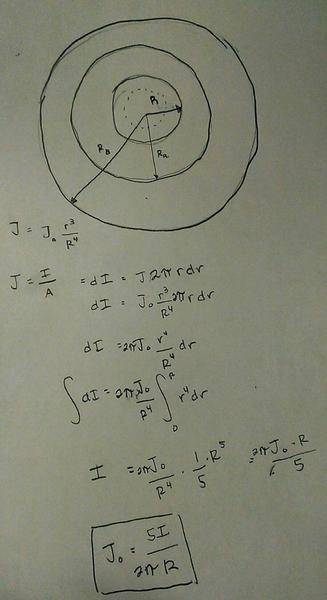 R
R_B
R_a
J = J_0 r^3/R^4
J = I/A = dI = J 2π r dr
dI = J_0 r^3/R^4 2π r dr
dI = 2πJ_0 r^4/R^4 dr
∫dI = 2πJ_0/R^4 ∫_0^R r^4 dr
I = 2πJ_0/R^4 · 1/5 · R^5 = 2πJ_0 · R/5
J_0 = 5I/2πR